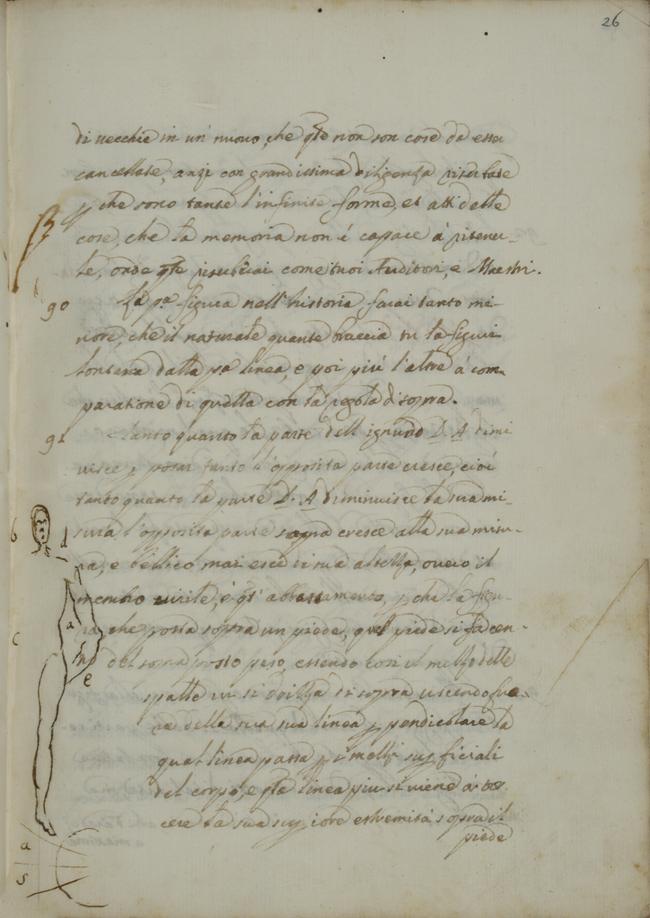 26
di vecchie in un' nuovo, che qte non son cose da esser
cancellate, anzi con grandissima diligenza riserbate
p che sono tante l'infinite forme, et atti delle
cose, che la memoria non é cappace á ritener-
le, onde qte riserberai come tuoi Auditori, e Maestri.
90 La pa figura nell'historia farai tanto mi
nore, che il naturale quante braccia tu la figuri
lontana dalla pa linea, e poi piú l'altre á com-
paratione di quella con la regola d'sopra.
91 Tanto quanto la parte dell'ignudo D. A dimi
nuisce p posar tanto l'opposita parte cresce, cioé
tanto quanto la parte D. A diminuisce la sua mi-
b sura l'opposita parte sopra cresce alla sua misu-
d ra, e bellico mai esce di sua altezza, overo il
membro virile, é qt' abbassamento, p che la figu-
a ra che posta sopra un piede, quel piede si fa cen-
c tro del sopra posto peso, essendo cosi il mezzo delle
e spalle vi si drizza di sopra uscendo fuo-
ra della sua sua linea ppendicolare la
qual linea passa p i mezzi supficiali
del corpo, e qta linea piu si viene á tor
cere la sua supiore estremitá sopra il
piede
a
s